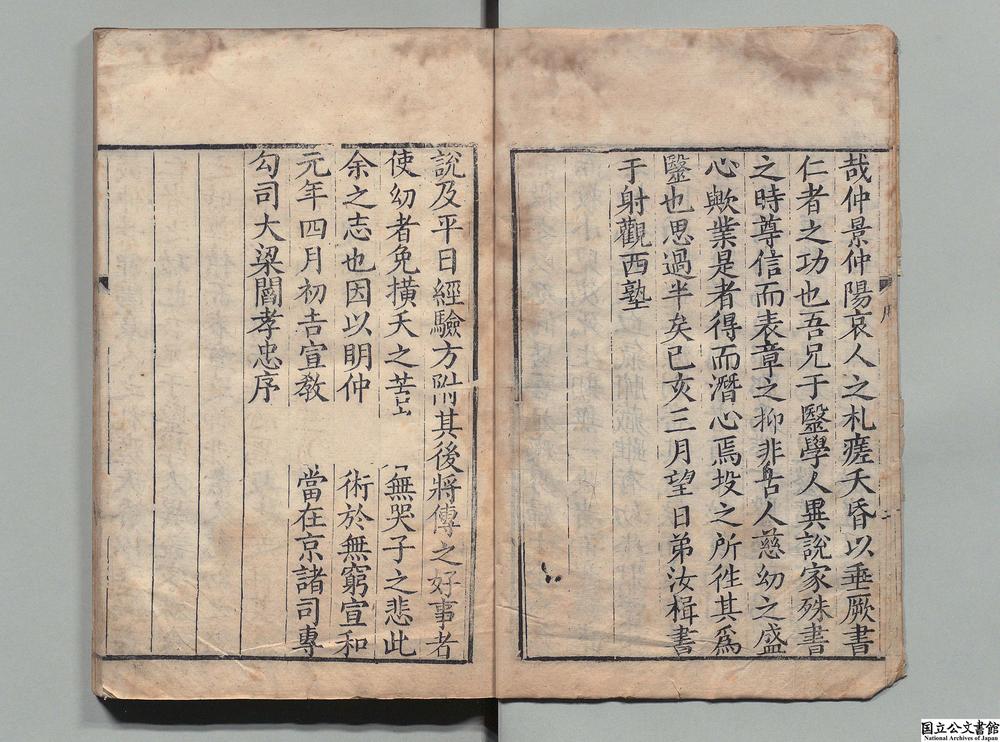 哉仲景仲陽哀人之札瘥夭昏以垂厥書
仁者之功也吾兄于毉學人異說家殊書
之時尊信而表章之抑非古人慈幼之盛
心歟業是者得而潛心焉投之所徃其爲
毉也思過半矣已亥三月望日弟汝楫書
于射觀西塾
說及平日經驗方附其後將傳之好事者
使幼者免橫夭之苦 無哭子之悲此
余之志也因以明仲 術於無窮宣和
元年四月初吉宣教 當在京諸司專
勾司大梁閻孝忠序
国立公文書館
National Archives of Japan